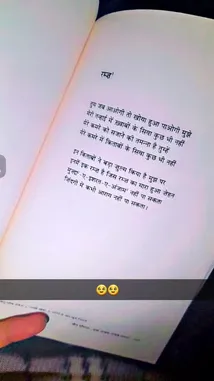 रम्ज़¹
तुम जब आओगी तो खोया हुआ पाओगी मुझे
मेरी तन्हाई में ख़्वाबों के सिवा कुछ भी नहीं
मेरे कमरे को सजाने की तमन्ना है तुम्हें
मेरे कमरे में किताबों के सिवा कुछ भी नहीं
इन किताबों ने बड़ा ज़ुल्म किया है मुझ पर
इनमें इक रम्ज़ है जिस रम्ज़ का मारा हुआ ज़ेहन
मुज़्दा-ए-इशरत-ए-अंजाम² नहीं पा सकता
ज़िंदगी में कभी आराम नहीं पा सकता।
😉😉